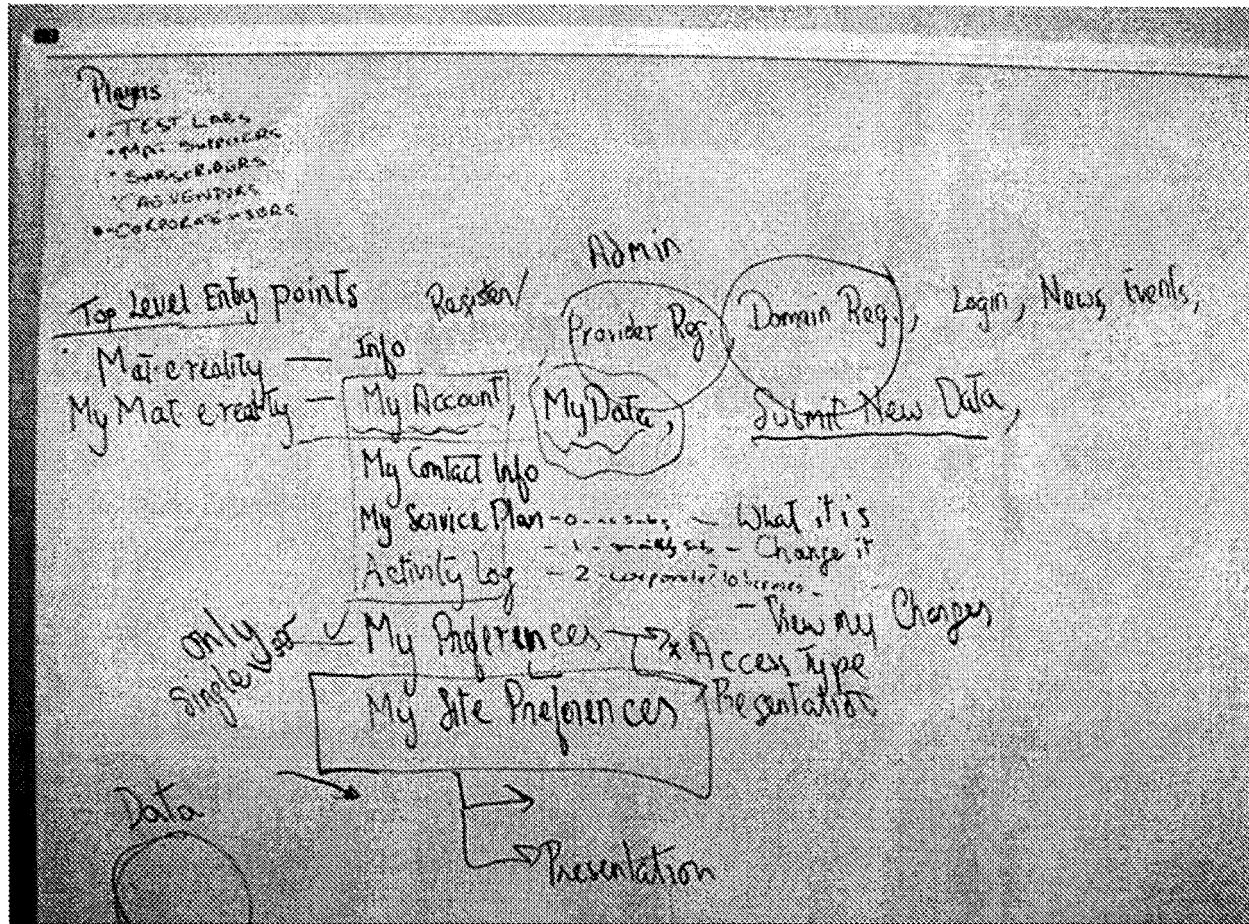 Players
• TEST LABS
• MAT SUPPLIERS
• SUBSCRIBERS
• ADVENDORS
• CORPORATE USERS
Admin
Top Level Entry points Register/ Provider Reg., Domain Reg., Login, News, Events,
• Mat-e reality — Info
My Mat e reality — My Account, My Data, Submit New Data,
My Contact Info
My Service Plan - 0 - — What it is
- 1 - - Change it
Activity Log - 2 - corporate
- View my Changes
only single user ✓ My Preferences Access Type
Presentation
My Site Preferences
Data
Presentation